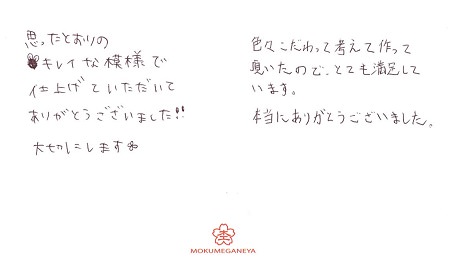 思ったとおりの
キレイな模様で
仕上げていただいて
ありがとうございました!!
大切にします
色々こだわって考えて作って
頂いたので、とても満足して
います。
本当にありがとうございました。
MOKUMEGANEYA